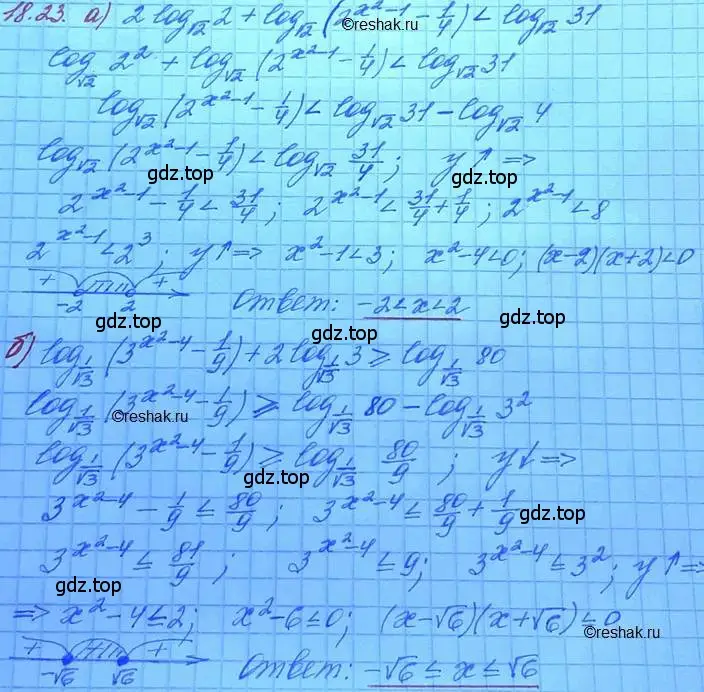 18.23. а) 2 log_√2 2 + log_√2 (2^(x²-1) - 1/4) < log_√2 31
log_√2 2² + log_√2 (2^(x²-1) - 1/4) < log_√2 31
log_√2 (2^(x²-1) - 1/4) < log_√2 31 - log_√2 4
log_√2 (2^(x²-1) - 1/4) < log_√2 31/4 ; y↑ =>
gdz.top gdz.top
2^(x²-1) - 1/4 < 31/4 ; 2^(x²-1) < 31/4 + 1/4 ; 2^(x²-1) < 8
2^(x²-1) < 2³ ; y↑ => x² - 1 < 3; x² - 4 < 0; (x-2)(x+2) < 0
+ - +
-2 2 Ответ: -2 < x < 2
gdz.top gdz.top
б) log_1/√3 (3^(x²-4) - 1/9) + 2 log_1/√3 3 ≥ log_1/√3 80
log_1/√3 (3^(x²-4) - 1/9) ≥ log_1/√3 80 - log_1/√3 3²
©reshak.ru ©reshak.ru
log_1/√3 (3^(x²-4) - 1/9) ≥ log_1/√3 80/9 ; y↓ =>
3^(x²-4) - 1/9 ≤ 80/9 ; 3^(x²-4) ≤ 80/9 + 1/9
gdz.top gdz.top
3^(x²-4) ≤ 81/9 ; 3^(x²-4) ≤ 9; 3^(x²-4) ≤ 3² ; y↑ =>
gdz.top
=> x² - 4 ≤ 2; x² - 6 ≤ 0; (x-√6)(x+√6) ≤ 0
©reshak.ru
+ - +
-√6 √6 Ответ: -√6 ≤ x ≤ √6